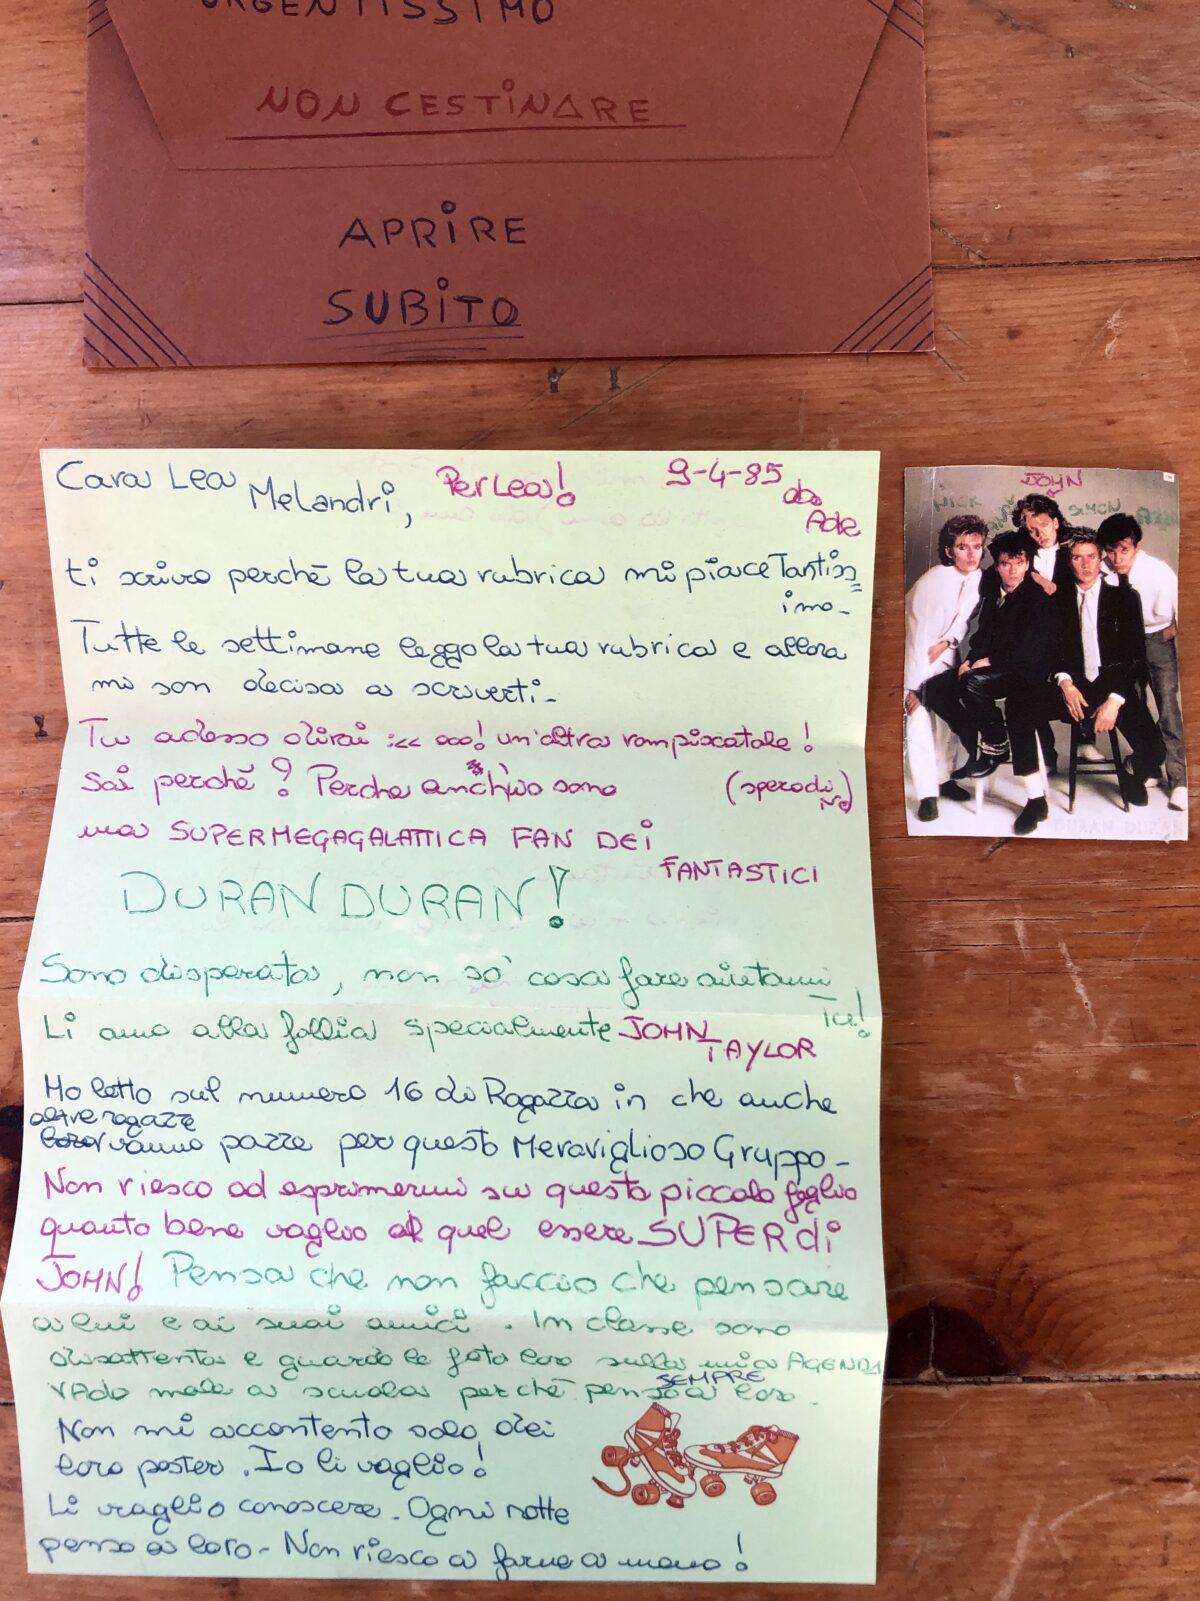 URGENTISSIMO
NON CESTINARE
APRIRE
SUBITO
Cara Lea Melandri,
Per Lea!
9-4-85
da
Ade
ti scrivo perché la tua rubrica mi piace Tantiss=
imo-
Tutte le settimane leggo la tua rubrica e allora
mi son decisa a scriverti-
Tu adesso dirai :<< ooo! un'altra rompiscatole!
Sai perché? Perche anch'io sono (spero di no)
una SUPERMEGAGALATTICA FAN DEI
FANTASTICI
DURAN DURAN!
Sono disperata, non so' cosa fare aiutami
Tu!
Li amo alla follia specialmente JOHN
TAYLOR
Ho letto sul numero 16 di Ragazza in che anche
altre ragazze
vanno pazze per questo Meraviglioso Gruppo-
Non riesco ad esprimermi su questo piccolo foglio
quanto bene voglio a quel essere SUPER di
JOHN! Pensa che non faccio che pensare
a lui e ai suoi amici. In classe sono
disattenta e guardo le foto loro sulla mia AGENDA
SEMPRE
VAdo male a scuola perché penso a loro.
Non mi accontento solo dei
loro poster. Io li voglio!
Li voglio conoscere. Ogni notte
penso a loro- Non riesco a farne a meno!
JOHN
NICK
SIMON
DURAN DURAN